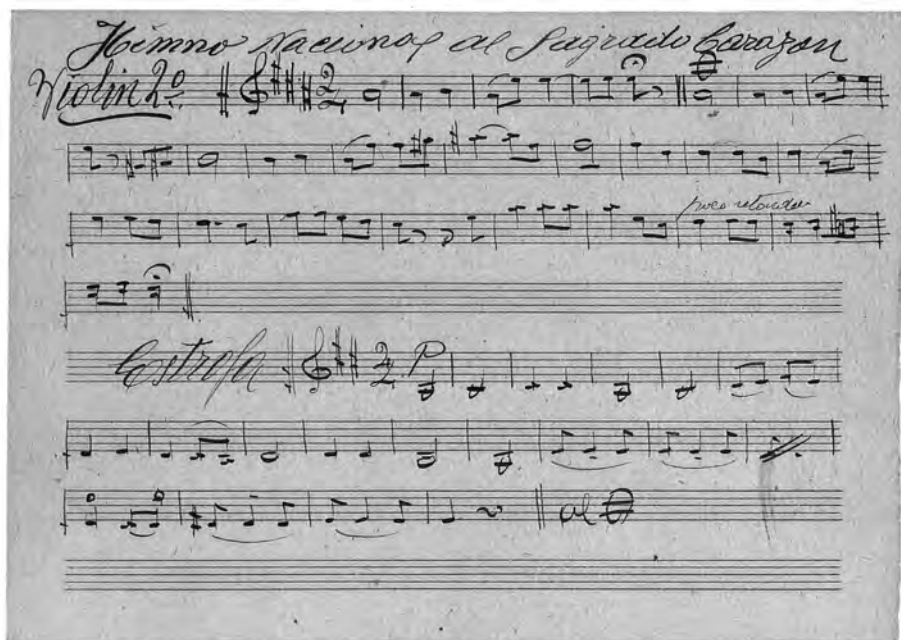 Himno Nacional al Sagrado Corazon
Violin 2º
2
poco retardan
Estrofa
2 P
al